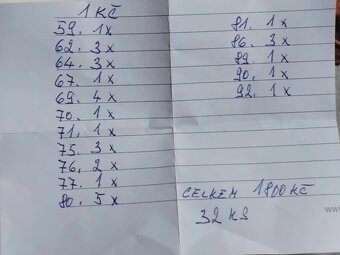 1 Kč
59. 1x
62. 3x
64. 3x
67. 1x
69. 4x
70. 1x
71. 1x
75. 3x
76. 2x
77. 1x
80. 5x
81. 1x
86. 3x
89. 1x
90. 1x
92. 1x
CELKEM 1800 Kč
32 KS
www